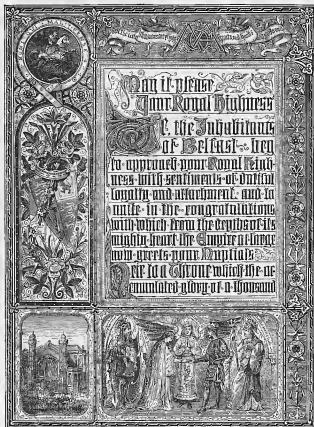 May it please
Your Royal Highness
We, the Inhabitants
of Belfast beg
to approach your Royal High-
ness with sentiments of dutiful
loyalty and attachment and to
unite in the congratulations
with which from the depths of its
mighty heart the Empire at large
now greets your Nuptials
Heir to a Throne which the ac-
cumulated glory of a thousand